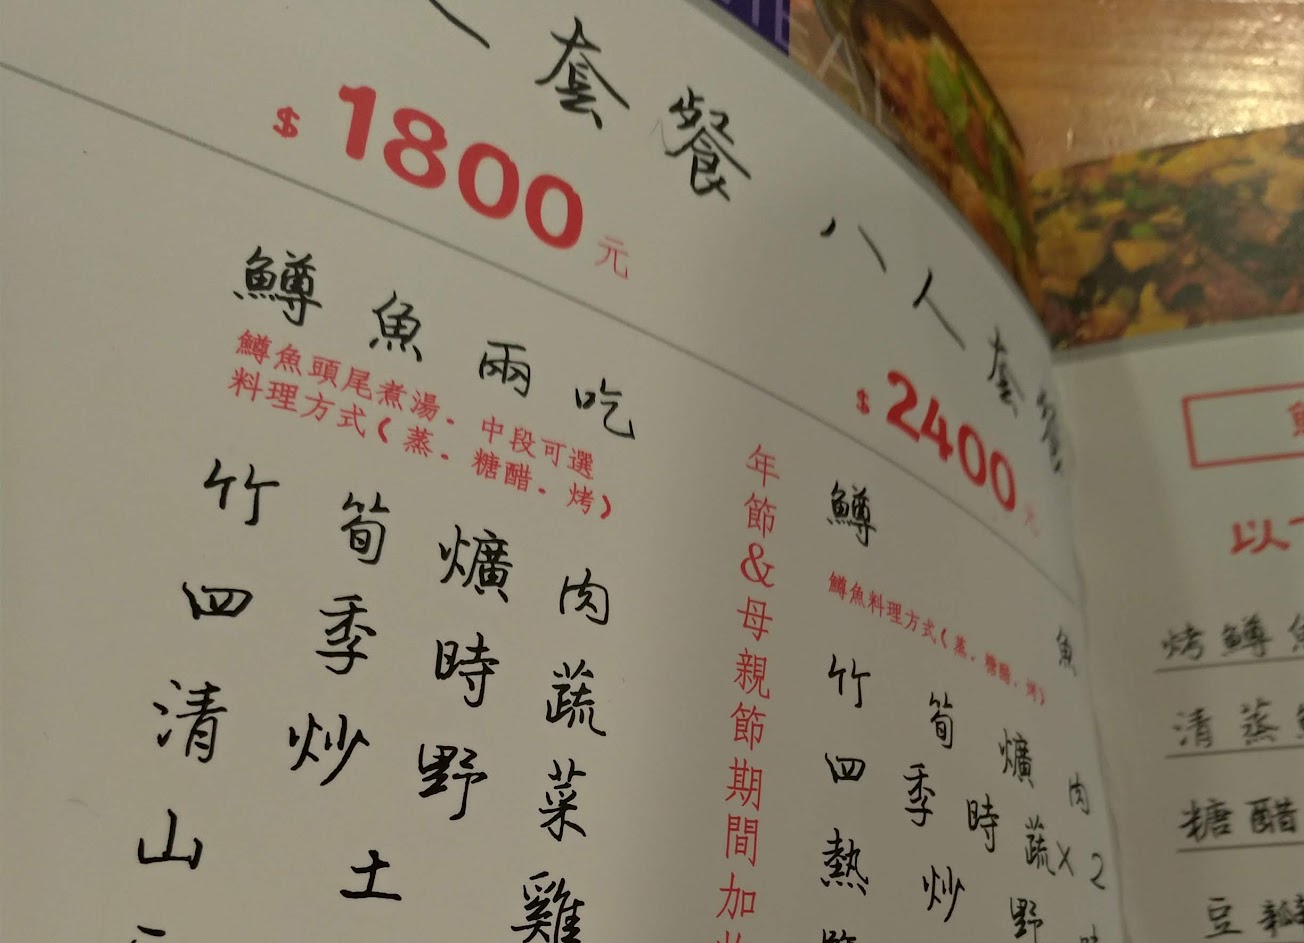 人套餐
$1800元
鱒魚兩吃
鱒魚頭尾煮湯.中段可選
料理方式(蒸.糖醋.烤)
竹筍爌肉
四季時蔬
清炒野菜
山土雞
年節&母親節期間加
八人套餐
$2400元
鱒魚
鱒魚料理方式(蒸.糖醋.烤)
竹筍爌肉
四季時蔬x2
熱炒野
以下
烤鱒魚
清蒸
糖醋
豆瓣